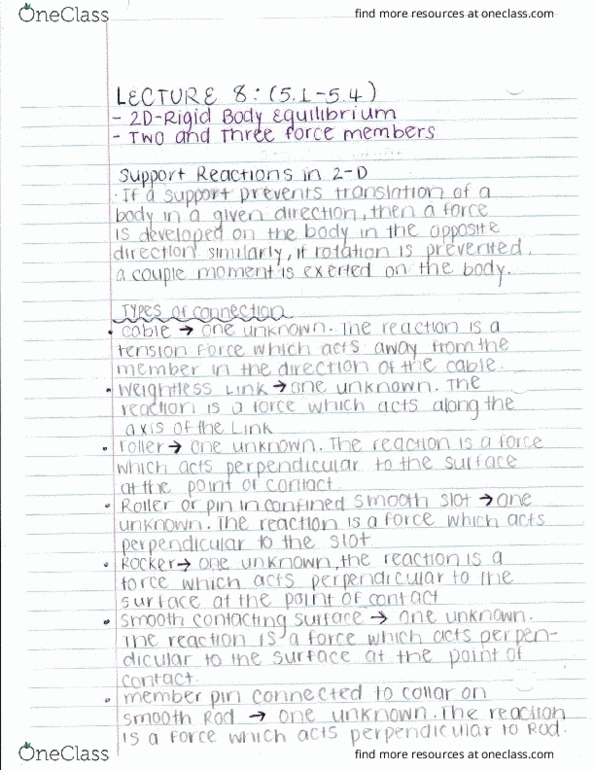 OneClass
find more resources at oneclass.com
LECTURE 8: (5.1-5.4)
- 2D-Rigid Body Equilibrium
- Two and Three force members
Support Reactions in 2-D
· If a support prevents translation of a
body in a given direction, then a force
is developed on the body in the opposite
direction. similarly, if rotation is prevented,
a couple moment is exerted on the body.
Types of connection
• cable → one unknown. The reaction is a
tension force which acts away from the
member in the direction of the cable.
• weightless Link → one unknown. The
reaction is a force which acts along the
axis of the Link
• roller → one unknown. The reaction is a force
which acts perpendicular to the surface
at the point of contact
• Roller or pin in confined smooth slot → one
unknown. The reaction is a force which acts
perpendicular to the slot
• Rocker → one unknown, the reaction is a
force which acts perpendicular to the
surface at the point of contact
• smooth contacting surface → one unknown.
The reaction is a force which acts perpen-
dicular to the surface at the point of
contact.
• member pin connected to collar on
smooth Rod → one unknown. The reaction
is a force which acts perpendicular to Rod.
OneClass
find more resources at oneclass.com